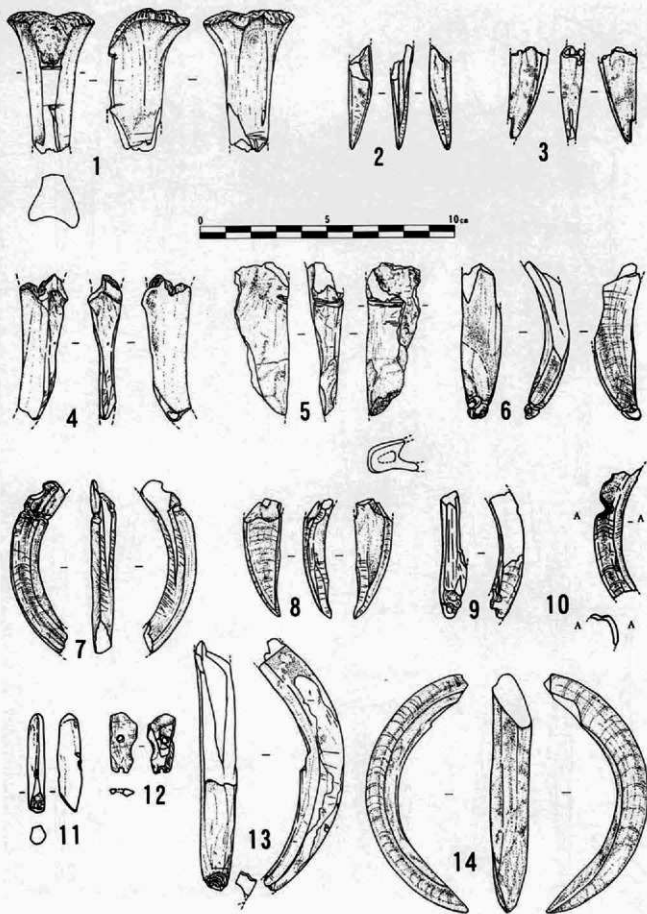 1
2
3
0 5 10 cm
4
5
6
7
8
9
A A
10
A A
11
12
13
14